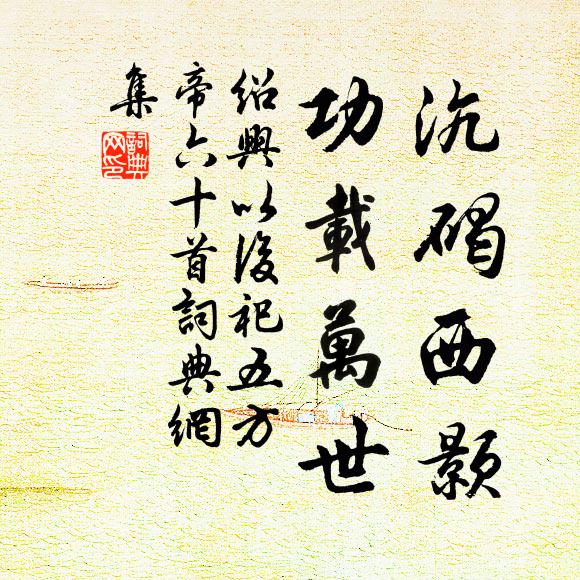 沆碭西顥
功載萬世
紹興以後祀五方
帝六十首詞典網
集
詞典网印